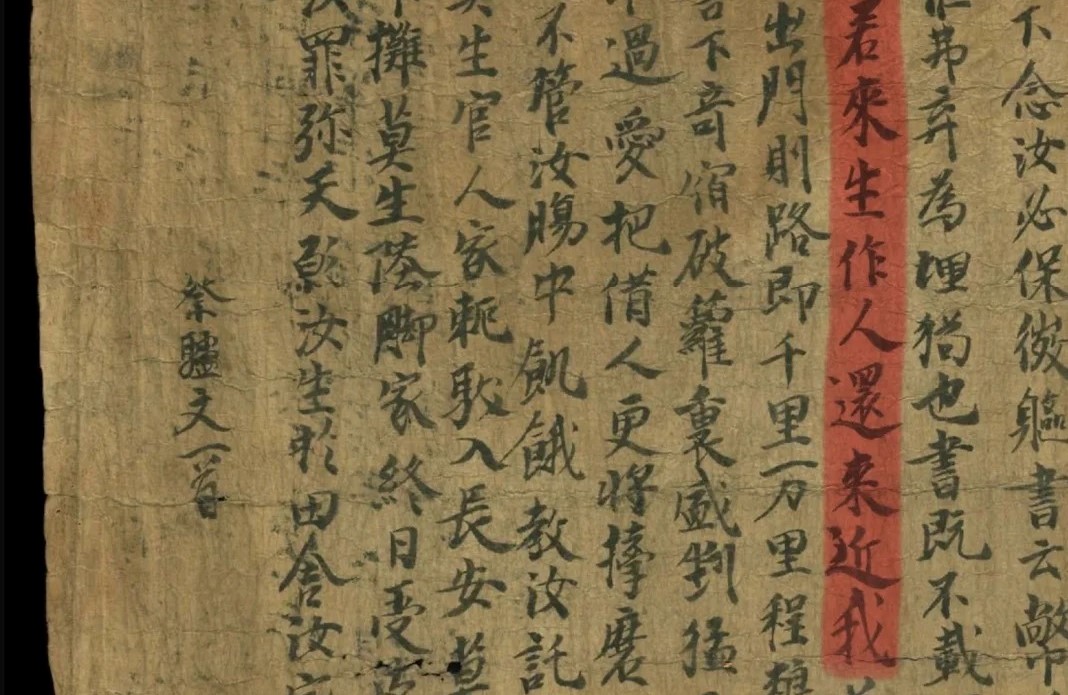 念汝必保微軀書云
弗弃為埋也書既不載
若來生作人還來近我
出門則路即千里一万里程
下奇宿破籮裏盛剉猛
過愛把借人更將磨
不管汝腸中飢餓教汝託
莫生官人家軛馱入長安莫
攤莫生陸脚家終日受
罪弥天願汝生於田舍汝
祭驢文一首